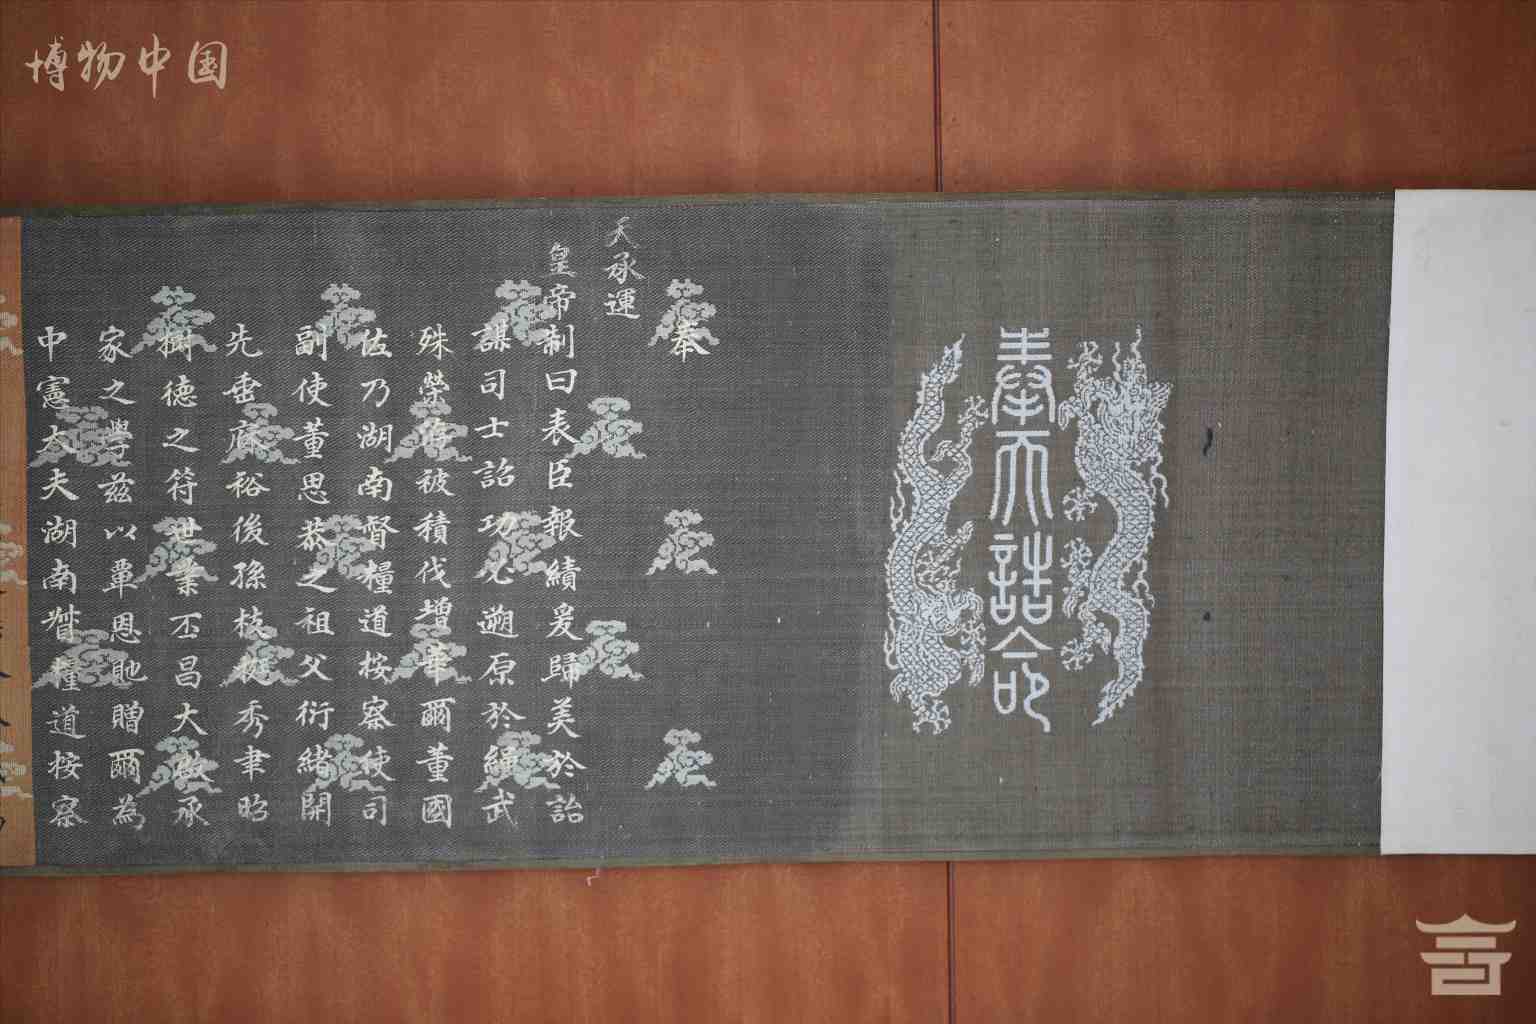 博物中国
奉天誥命
奉
天承運
皇帝制曰表臣報績爰歸美於詒
謀司士詔功必遡原於繩武
殊榮游被積伐增華爾董國
佐乃湖南督糧道按察使司
副使董思恭之祖父衍緒開
先垂庥裕後孫枝挺秀聿昭
樹德之符世業丕昌大啟承
家之學茲以覃恩貤贈爾為
中憲大夫湖南督糧道按察